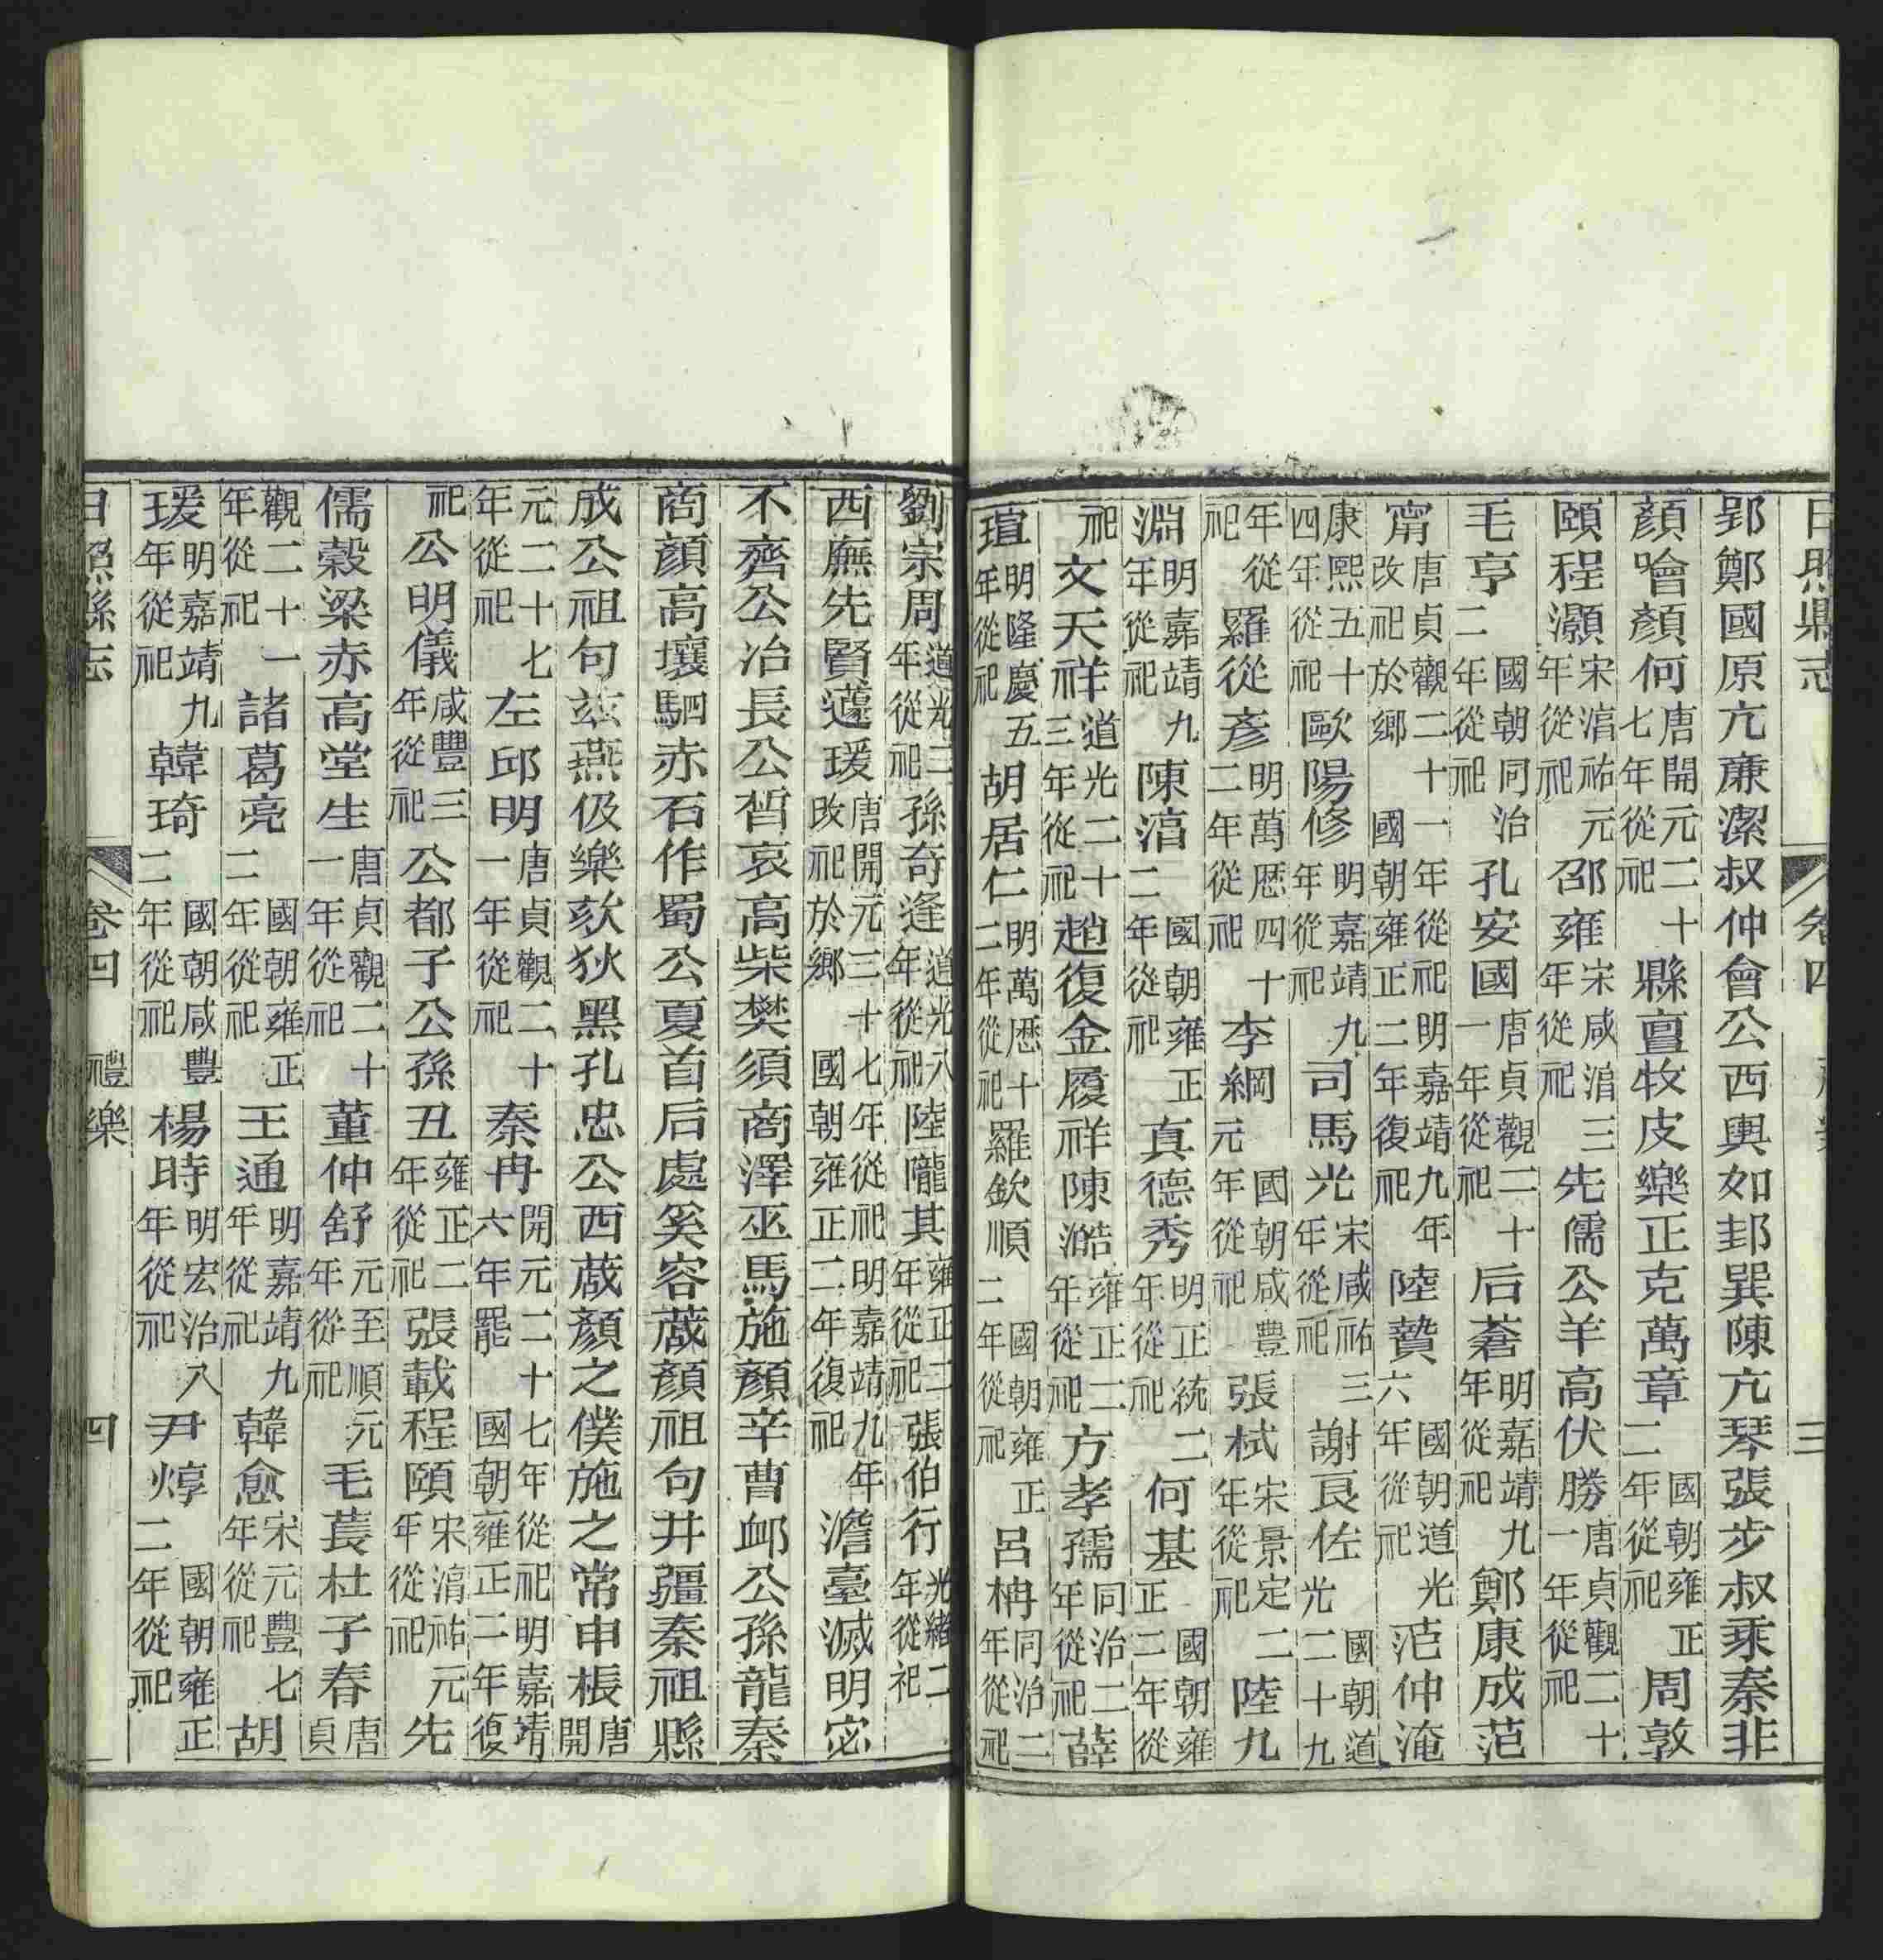 日照縣志 卷四 禮樂 三
郢鄭國原亢廉潔叔仲會公西輿如邽巽陳亢琴張步叔乘秦非
顏噲顏何唐開元二十七年從祀縣亶牧皮樂正克萬章國朝雍正二年從祀周敦
頤程灝宋淯祐元年從祀邵雍宋咸淯三年從祀先儒公羊高伏勝唐貞觀二十一年從祀
毛亨國朝同治二年從祀孔安國唐貞觀二十一年從祀后蒼明嘉靖九年從祀鄭康成范
甯唐貞觀二十一年從祀明嘉靖九年改祀於鄉國朝雍正二年復祀陸贄國朝道光六年從祀范仲淹
康熙五十四年從祀歐陽修明嘉靖九年從祀司馬光宋咸祐三年從祀謝良佐國朝道光二十九
年從祀羅從彥明萬歷四十二年從祀李綱國朝咸豐元年從祀張栻宋景定二年從祀陸九
淵明嘉靖九年從祀陳淯國朝雍正二年從祀真德秀明正統二年從祀何基國朝雍正二年從
祀文天祥道光二十三年從祀趙復金履祥陳澔雍正二年從祀方孝孺同治二年從祀薛
瑄明隆慶五年從祀胡居仁明萬歷十二年從祀羅欽順國朝雍正二年從祀呂柟同治二年從祀
劉宗周道光二年從祀孫奇逢道光八年從祀陸隴其雍正二年從祀張伯行光緒二年從祀
西廡先賢蘧瑗唐開元二十七年從祀明嘉靖九年改祀於鄉國朝雍正二年復祀澹臺滅明宓
不齊公冶長公晳哀高柴樊須商澤巫馬施顏辛曹卹公孫龍秦
商顏高壤駟赤石作蜀公夏首后處奚容蒧顏祖句井疆秦祖縣
成公祖句茲燕伋樂欬狄黑孔忠公西蒧顏之僕施之常申棖唐開
元二十七年從祀左邱明唐貞觀二十一年從祀秦冉開元二十七年從祀明嘉靖六年罷國朝雍正二年復
祀公明儀咸豐三年從祀公都子公孫丑雍正二年從祀張載程頤宋淯祐元年從祀先
儒穀梁赤高堂生唐貞觀二十一年從祀董仲舒元至順元年從祀毛萇杜子春唐貞
觀二十一年從祀諸葛亮國朝雍正二年從祀王通明嘉靖九年從祀韓愈宋元豐七年從祀胡
瑗明嘉靖九年從祀韓琦國朝咸豐二年從祀楊時明宏治八年從祀尹焞國朝雍正二年從祀
日照縣志 卷四 禮樂 四